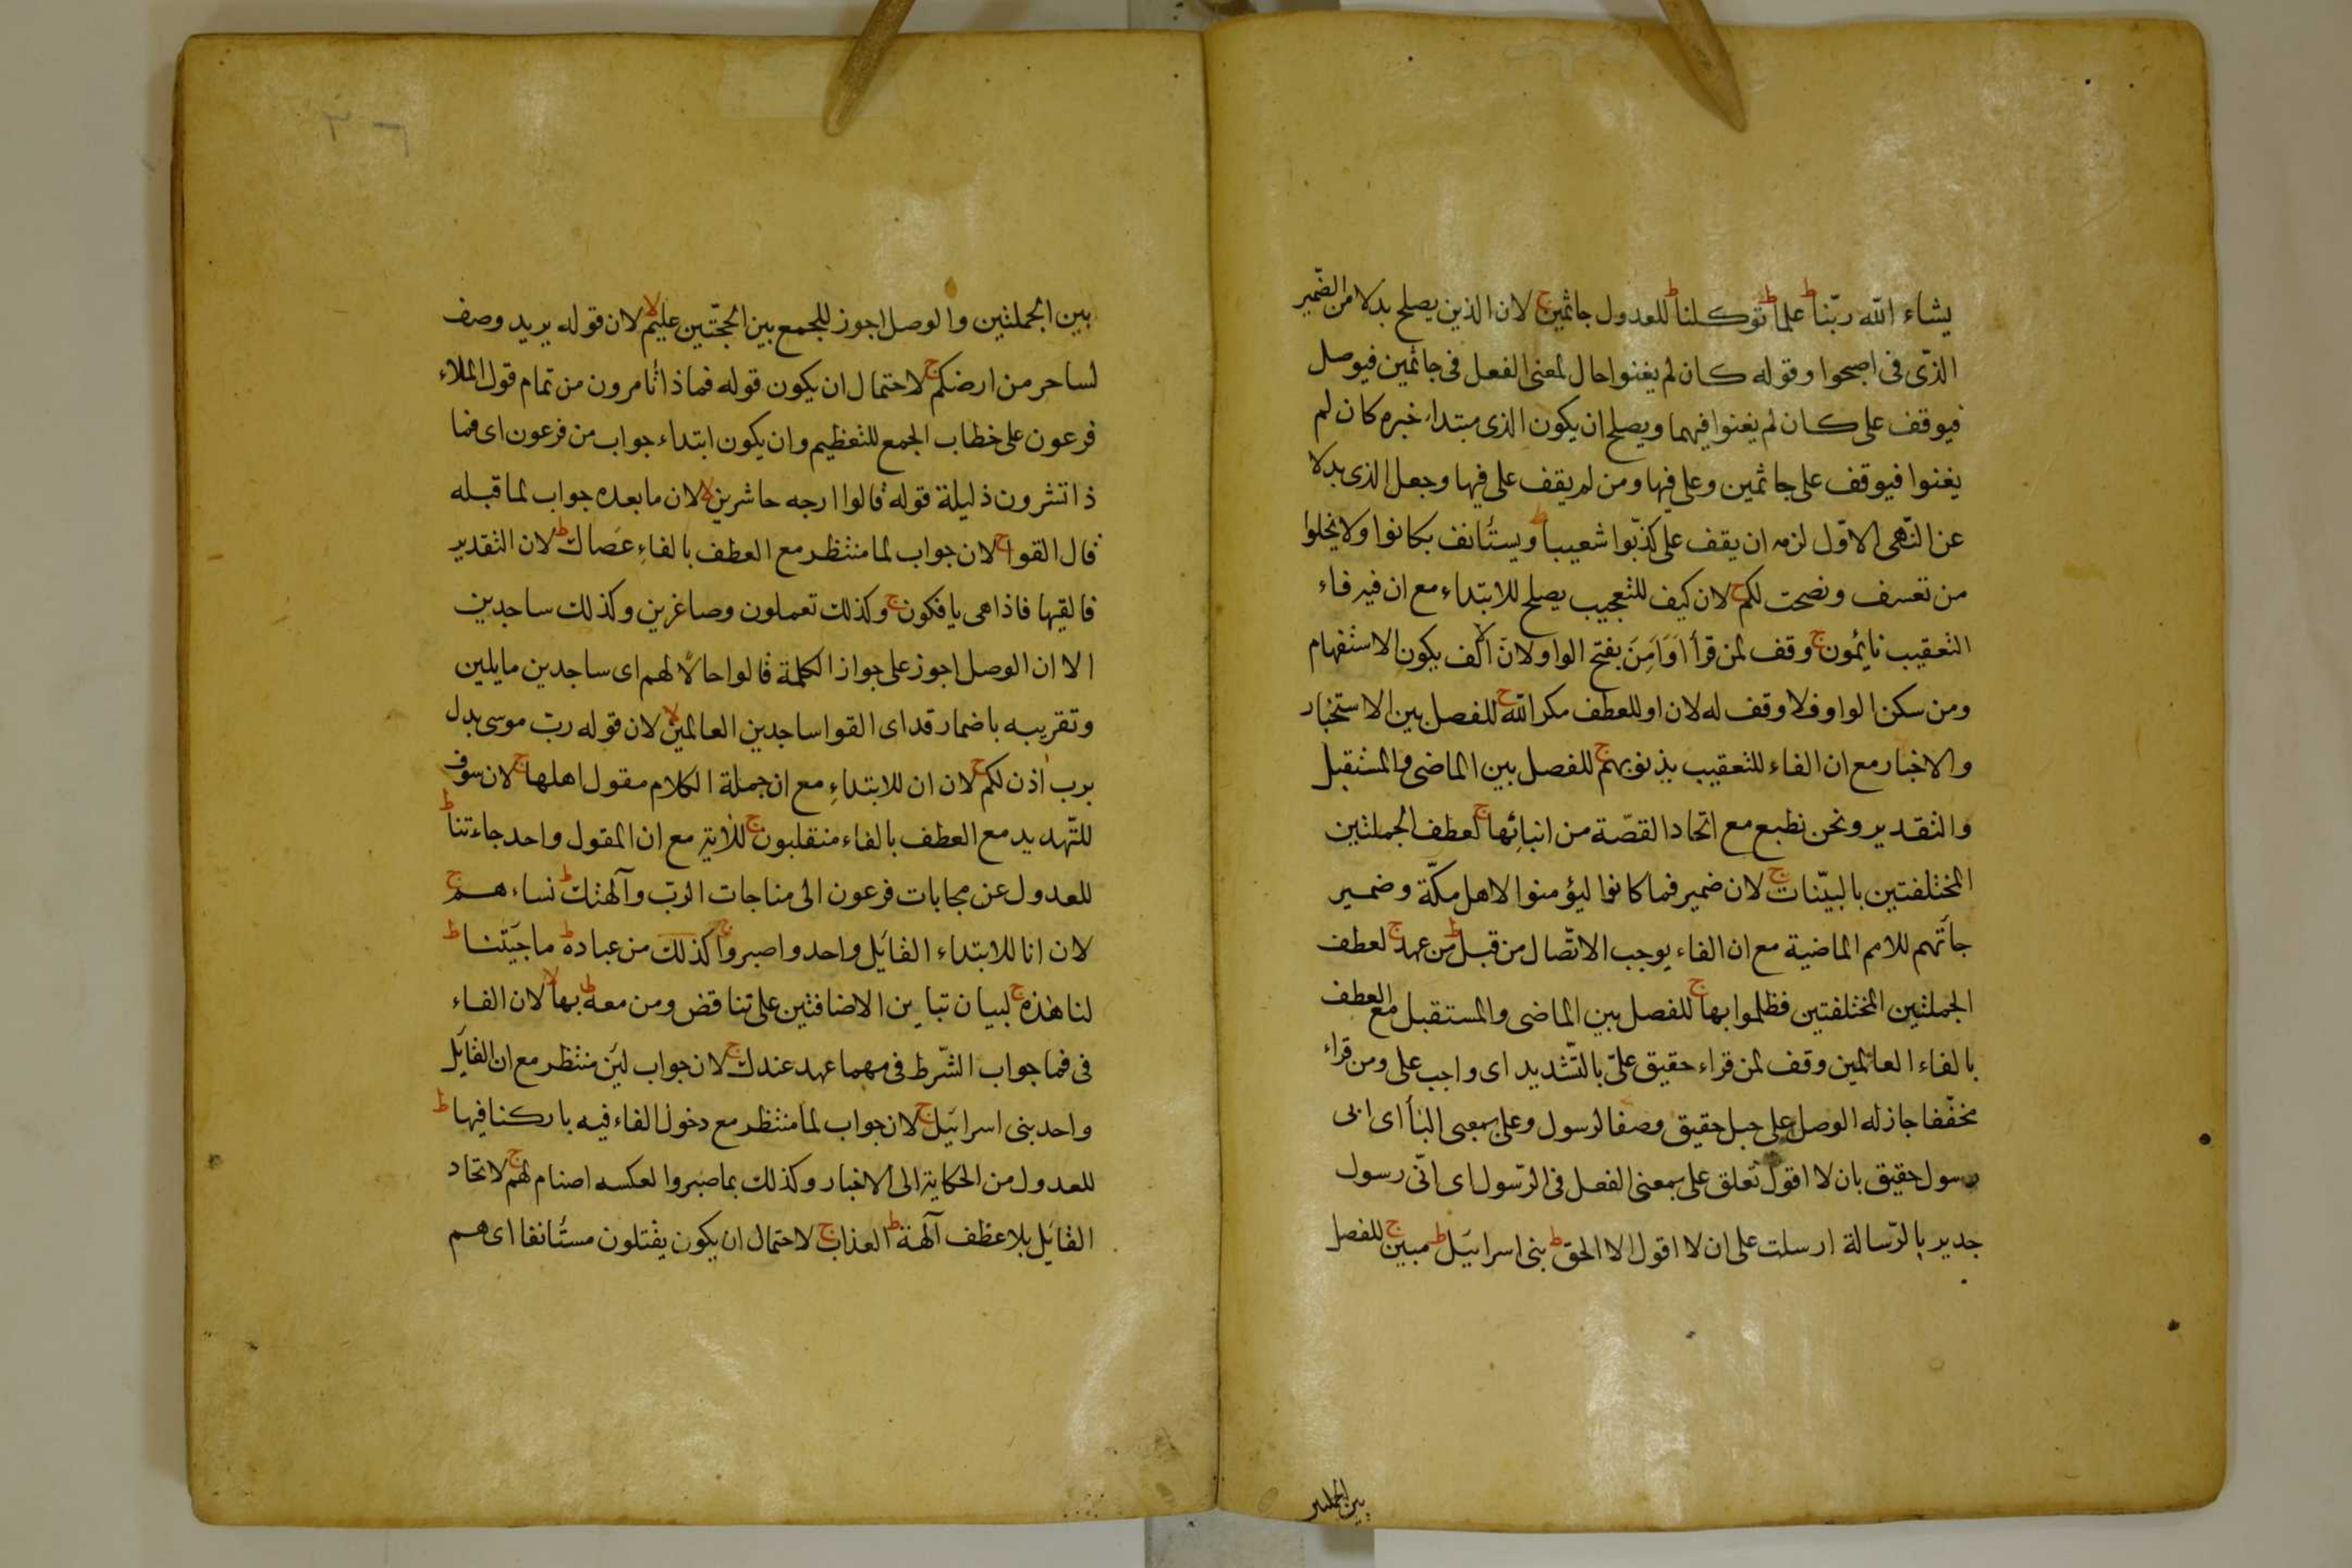 يشاء الله ربّنا ط علما ط توكلنا ط للعدول جاثمين ج لان الذين يصلح بدلا من الضّمير
الذى فى اصبحوا وقوله كان لم يغنوا حال لمعنى الفعل فى جاثمين فيوصل
فيوقف على كان لم يغنوا فيهما ويصلح ان يكون الذى مبتداء خبره كان لم
يغنوا فيوقف على جاثمين وعلى فيها ومن لم يقف على فيها وجعل الذى بدلا
عن النّهى الاوّل لزمه ان يقف على كذّبوا شعيبا ط ويستأنف بكانوا ولا يخلوا
من تعسف ونصحت لكم ج لان كيف للتعجيب يصلح للابتداء مع ان فيه فاء
التعقيب نائمون ج وقف لمن قرأ اَوَاَمِنَ بفتح الواو لانّ الالف يكون الاستفهام
ومن سكن الواو فلا وقف له لان او للعطف مكر الله ج للفصل بين الاستخبار
والاخبار مع ان الفاء للتعقيب بذنوبهم ج للفصل بين الماضى والمستقبل
والتقدير ونحن نطبع مع اتحاد القصّة من انبائِها ج لعطف الجملتين
المختلفتين بالبيّنات ج لان ضمير فما كانوا ليؤمنوا لاهل مكّة وضمير
جاءتهم للامم الماضية مع ان الفاء يوجب الاتّصال من قبل ط من عهد ج لعطف
الجملتين المختلفتين فظلموا بها ج للفصل بين الماضى والمستقبل مع العطف
بالفاء العالمين وقف لمن قراء حقيق علىّ بالتّشديد اى واجب على ومن قراء
مخفّفا جاز له الوصل على جعل حقيق وصفا لرسول وعلى بمعنى الباء اى انى
رسول حقيق بان لا اقول تعلق على بمعنى الفعل فى الرّسول اى انّى رسول
جدير بالرّسالة ارسلت على ان لا اقول الا الحق ط بنى اسرائيل ط مبين ج للفصل
بين الجملتين
بين الجملتين والوصل اجوز للجمع بين الحجّتين عليم لا لان قوله يريد وصف
لساحر من ارضكم ج لاحتمال ان يكون قوله فماذا تأمرون من تمام قول الملاء
فرعون على خطاب الجمع للتعظيم وان يكون ابتداء جواب من فرعون اى فما
ذا تشرون ذليلة قوله قالوا ارجه حاشرين لا لان ما بعده جواب لما قبله
قال القوا ج لان جواب لما منتظر مع العطف بالفاءِ عَصاك ط لان التقدير
فالقيها فاذا هى يافكون ج وكذلك تعملون وصاغرين وكذلك ساجدين
الا ان الوصل اجوز على جواز الكلمة قالوا حالًا لهم اى ساجدين مايلين
وتقريبه باضمار قد اى القوا ساجدين العالمين لا لان قوله ربّ موسى بدل
برب اذن لكم ج لان ان للابتداءِ مع ان جملة الكلام مقول اهلها ج لان سوف
للتّهديد مع العطف بالفاء منقلبون ج للاٰية مع ان المقول واحد جاءتنا ط
للعدول عن مجابات فرعون الى مناجات الربّ وآلهتك ط نساءهم ج
لان انا للابتداء القائل واحد واصبروا ج كذلك من عباده ط ما جئتنا ط
لنا هٰذه ج لبيان تباين الاضافتين على تناقض ومن معه ط بها لا لان الفاء
فى فما جواب الشّرط فى مهما عهد عندك ج لان جواب لئن منتظر مع ان القائل
واحد بنى اسرائيل ج لان جواب لما منتظر مع دخول الفاء فيه باركنا فيها ط
للعدول من الحكاية الى الاخبار وكذلك بما صبروا لعكسه اصنام لهم ج لاتحاد
القائل بلا عطف آلهة ط العذاب ج لاحتمال ان يكون يقتلون مستأنفا اى هم